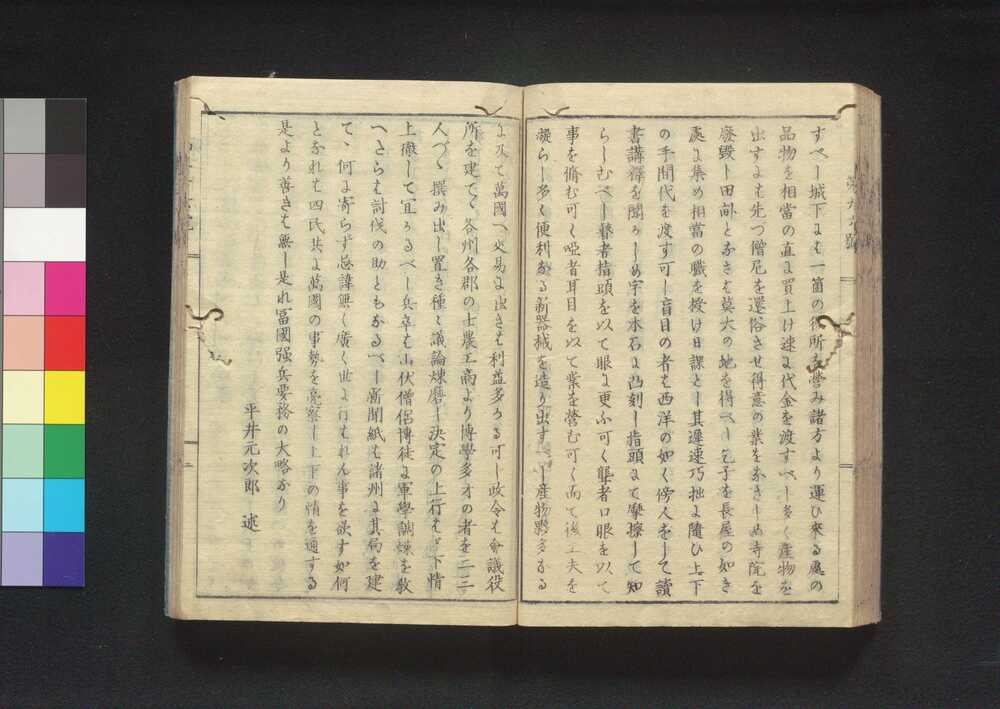 すべし城下にも一箇の役所を營み諸方より運ひ來る處の
品物を相當の直に買上け速に代金を渡すべし多く産物を
出すにも先づ僧尼を還俗させ得意の業をなさしめ寺院を
廢毀し田圃となさは莫大の地を得べし乞子を長屋の如き
處に集め相當の職を授け日課とし其遲速巧拙に隨ひ上下
の手間代を渡す可し盲目の者も西洋の如く傍人をして讀
書講釋を聞かしめ字を木石に凸刻し指頭にて摩擦して知
らしむべし瞽者指頭を以て眼に更ふ可く聾者口眼を以て
事を脩む可く啞者耳目を以て業を營む可く而て後工夫を
凝らし多く便利なる新器械を造り出すべし産物夥多なる
に及て萬國へ交易に出さは利益多かる可し政令は會議役
所を建てゝ各州各郡の士農工商より博學多才の者を二三
人づゝ撰み出し置き種々議論煉磨し決定の上行はゞ下情
上徹して宜かるべし兵卒は山伏僧侶博徒に軍學調煉を教
へさらは討伐の助ともなるべし新聞紙も諸州に其局を建
て、何に寄らず忌諱無く廣く世に行はれん事を欲す如何
となれは四民共に萬國の事勢を亮察し上下の情を通する
是より善きは無し是れ冨國强兵要務の大略なり
平井元次郎 述